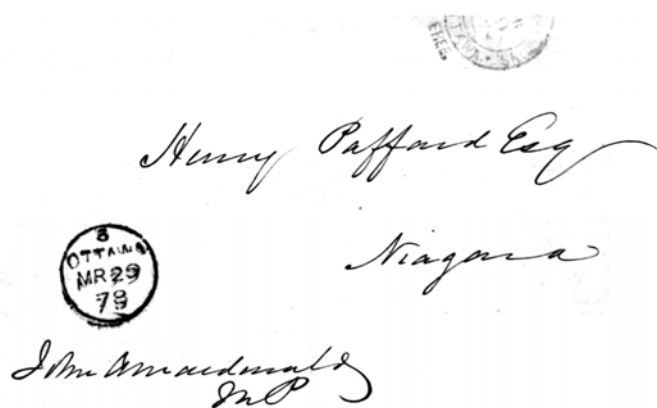 Henry Paffard Esq
Niagara
8
OTTAWA
MR 29
78
John A Macdonald
MP